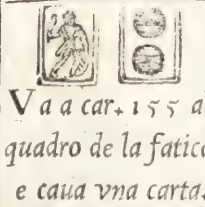 Va a car. 155 al
quadro de la fatica
e caua vna carta.